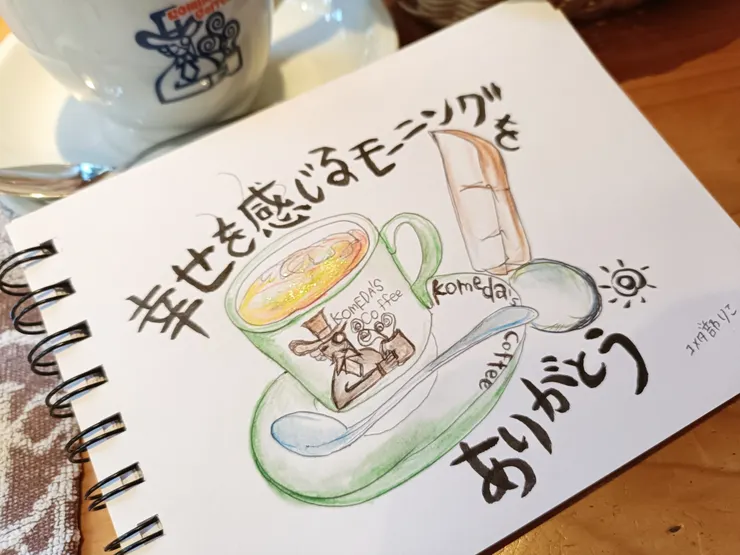 KOMEDA'S
Coffee
幸せを感じるモーニングを
KOMEDA'S
Coffee
Komeda's
Coffee
ありがとう
コメダ部りこ